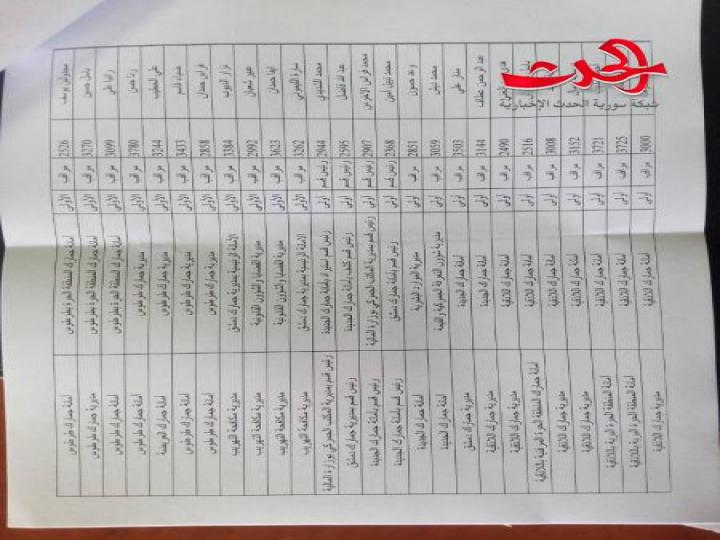 الحدث
شبكة سورية الحدث الإخبارية
يوسف 2526 مراقب الأولى أمانة جمارك المنطقة الحرة بطرطوس أمانة جمارك طرطوس
باسل حسن 3270 مراقب الأولى أمانة جمارك المنطقة الحرة بطرطوس مديرية جمارك طرطوس
رانيا علي 3099 مراقب الأولى أمانة جمارك المنطقة الحرة بطرطوس مديرية جمارك طرطوس
رنا حسن 3780 مراقب الأولى مديرية جمارك طرطوس أمانة جمارك طرطوس
علي الخطيب 3244 مراقب الأولى مديرية جمارك طرطوس أمانة جمارك العريضة
ضياء قاسم 3433 مراقب الأولى مديرية جمارك طرطوس أمانة جمارك طرطوس
فراس حمدان 2858 مراقب الأولى مديرية جمارك طرطوس أمانة جمارك طرطوس
نزار الديوب 3384 مراقب الأولى الأمانة الرئيسية بمديرية جمارك دمشق مديرية مكافحة التهريب
عبير شعبان 2992 مراقب الأولى مديرية القضايا والشؤون القانونية مديرية مكافحة التهريب
حمدان 3623 مراقب الأولى مديرية القضايا والشؤون القانونية مديرية مكافحة التهريب
سارة 3262 مراقب الأولى الأمانة الرئيسية بمديرية جمارك دمشق مديرية مكافحة التهريب
محمد 2944 رئيس قسم أولى رئيس قسم بأمانة جمارك الجديدة رئيس قسم بمديرية المكتب الجمركي بوزارة المالية
عبد الله فاضل 2595 رئيس قسم أولى رئيس قسم كشف بأمانة جمارك الجديدة رئيس قسم بمديرية جمارك دمشق
محمد فراس الأخرس 2907 رئيس قسم أولى رئيس قسم بمديرية المكتب الجمركي بوزارة المالية رئيس قسم بأمانة جمارك الجديدة
محمد نبيل 2368 رئيس قسم أولى رئيس قسم بأمانة جمارك دمشق رئيس قسم بأمانة جمارك الجديدة
حسون 2851 مراقب أولى مديرية الموارد البشرية أمانة جمارك الجديدة
محمد نبيل 3059 مراقب أولى مديرية شؤون التعرفة الجمركية والقيمة أمانة جمارك الجديدة
منار علي 3503 مراقب أولى أمانة جمارك الجديدة مديرية جمارك دمشق
عبد الرحمن 3144 مراقب أولى أمانة جمارك اللاذقية مديرية جمارك اللاذقية
2490 مراقب أولى أمانة جمارك اللاذقية مديرية جمارك اللاذقية
2516 مراقب أولى أمانة جمارك اللاذقية أمانة جمارك المنطقة الحرة المرفئية باللاذقية
3008 مراقب أولى أمانة جمارك اللاذقية مديرية جمارك اللاذقية
3152 مراقب أولى أمانة جمارك اللاذقية مديرية جمارك اللاذقية
3721 مراقب أولى أمانة جمارك اللاذقية أمانة المنطقة الحرة البرية باللاذقية
3725 مراقب أولى أمانة جمارك اللاذقية أمانة المنطقة الحرة البرية باللاذقية
3000 مراقب أولى أمانة جمارك اللاذقية مديرية جمارك اللاذقية